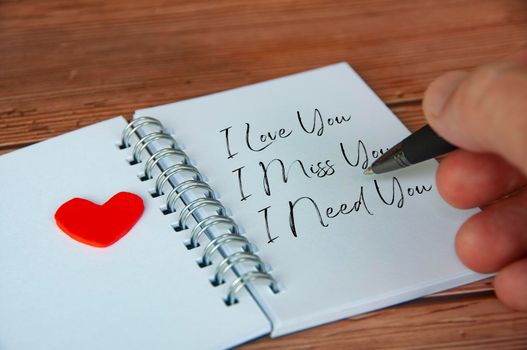 I Love You
I Miss You
I Need You